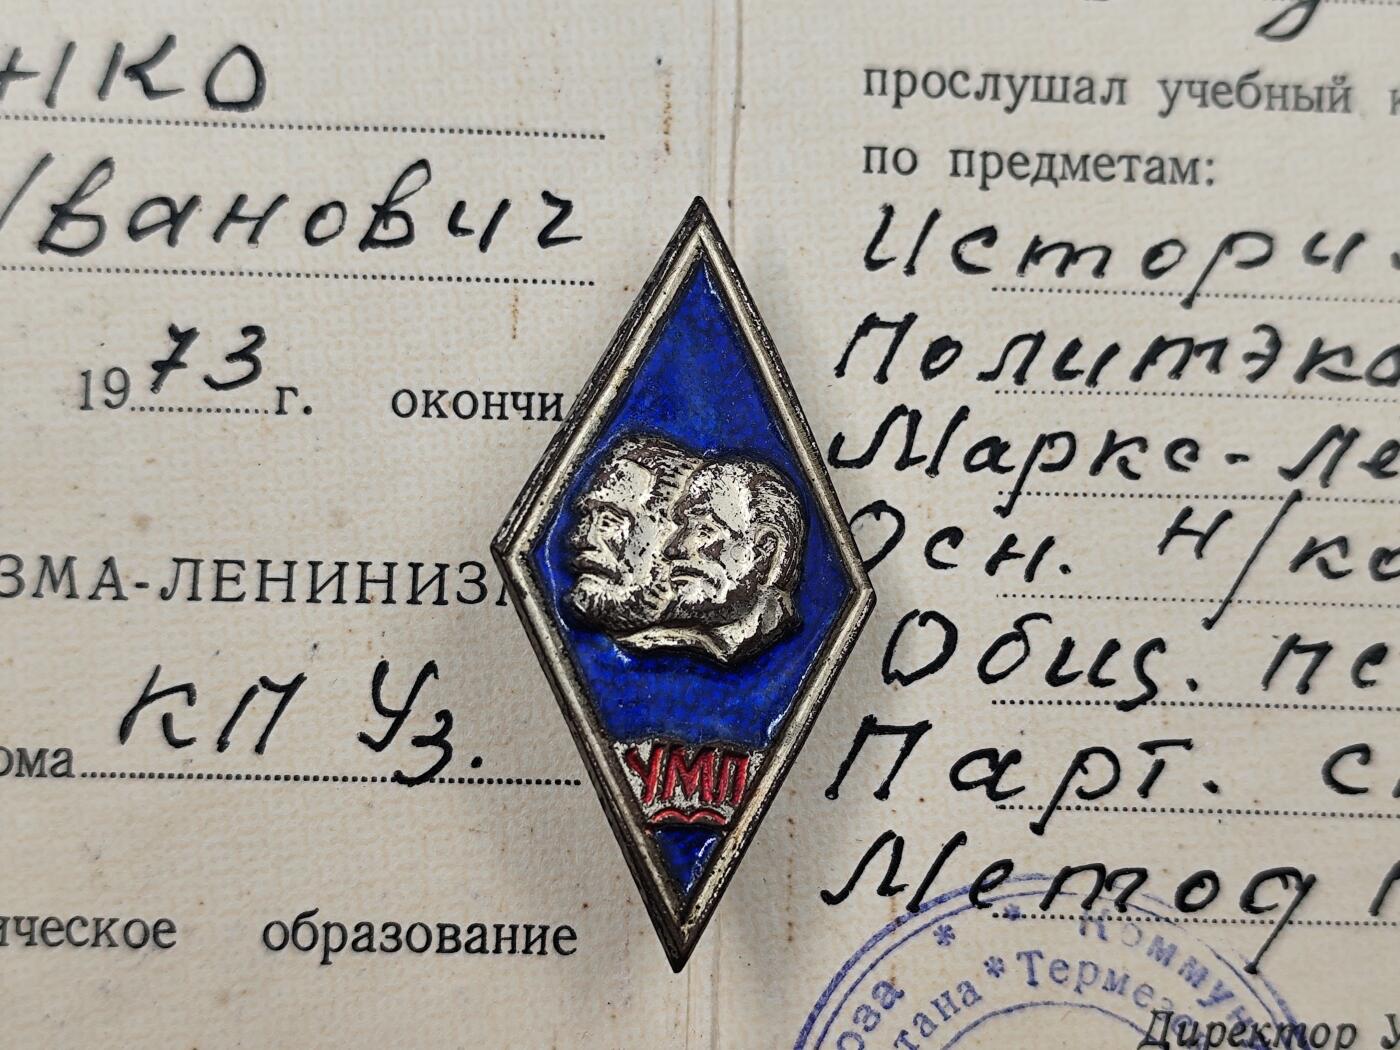 нко
Иванович
1973 г. окончи
ЗМА-ЛЕНИНИЗ
ома КП Уз.
ическое образование
прослушал учебный к
по предметам:
Истори
Политэко
Маркс-ле
Осн. н/ко
Общ. пс
Парт. с
Метод
УМЛ
* * Коммун
оза
тана * Термез
Директор У